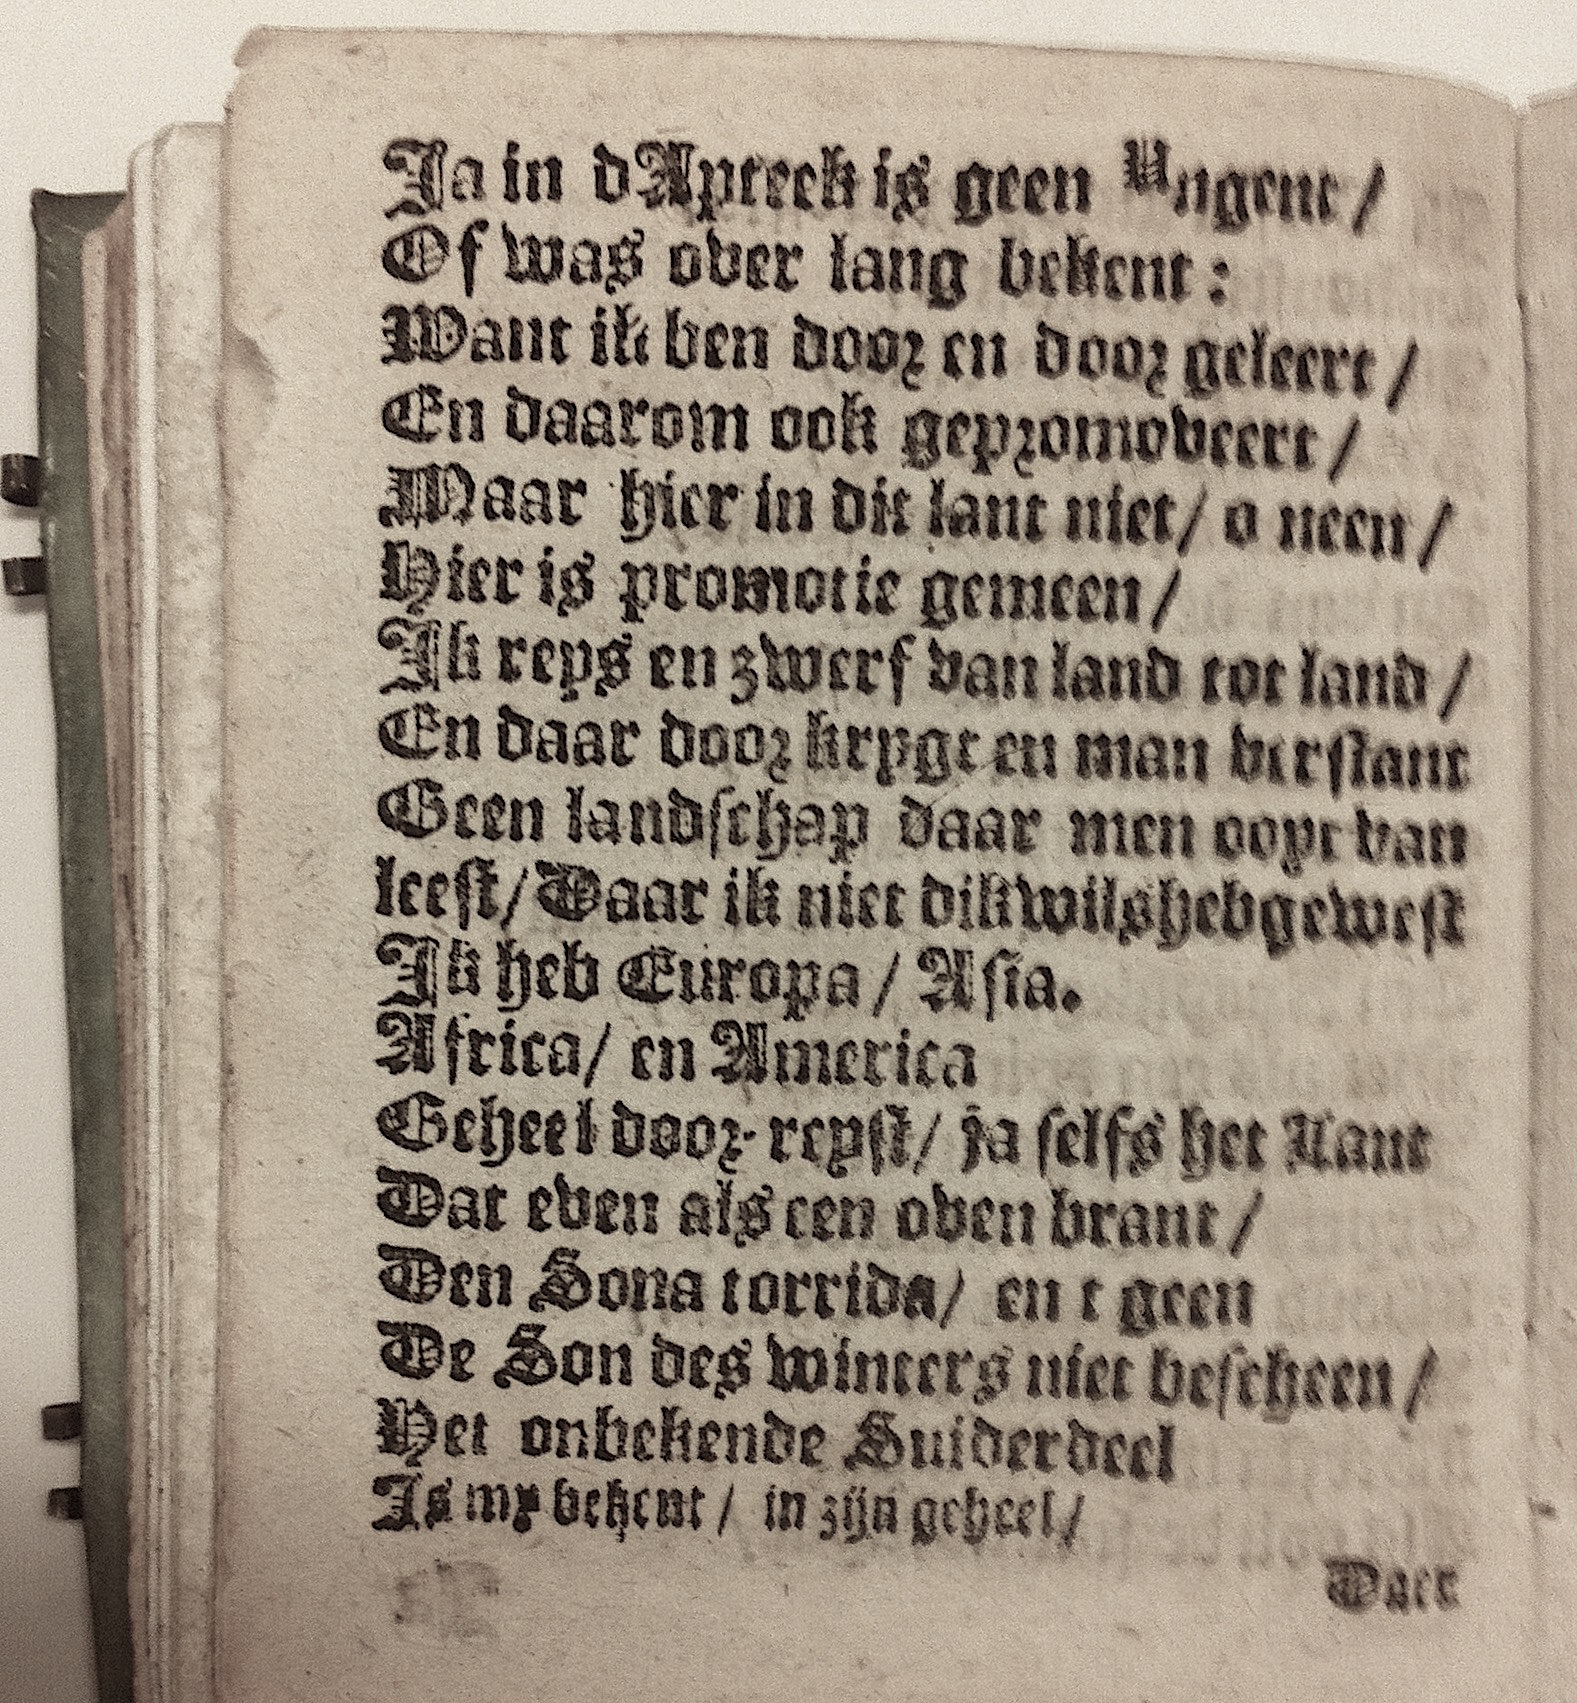 Ja in dApteek is geen Ungent /
Of was over lang bekent :
Want ik ben door en door geleert /
En daarom ook gepromoveert /
Maar hier in dit lant niet / o neen /
Hier is promotie gemeen /
Ik reys en zwerf van land tot land /
En daar door krygt en man verſtant
Geen landſchap daar men ooyt van
leeſt / Daar ik niet dikwilshebgeweſt
Ik heb Europa / Aſia.
Africa / en America
Geheel door-reyſt / ja ſelfs het Lant
Dat even als een oven brant /
Den Sona torrida / en t geen
De Son des winters niet beſcheen /
Het onbekende Suiderdeel
Is my bekent / in zijn geheel /